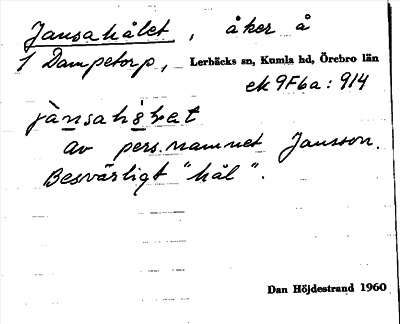 Jansahålet, åker å
1 Dampetorp, Lerbäcks sn, Kumla hd, Örebro län
ek 9F6a: 914
av pers.namnet Jansson.
Besvärligt "hål".
Dan Höjdestrand 1960